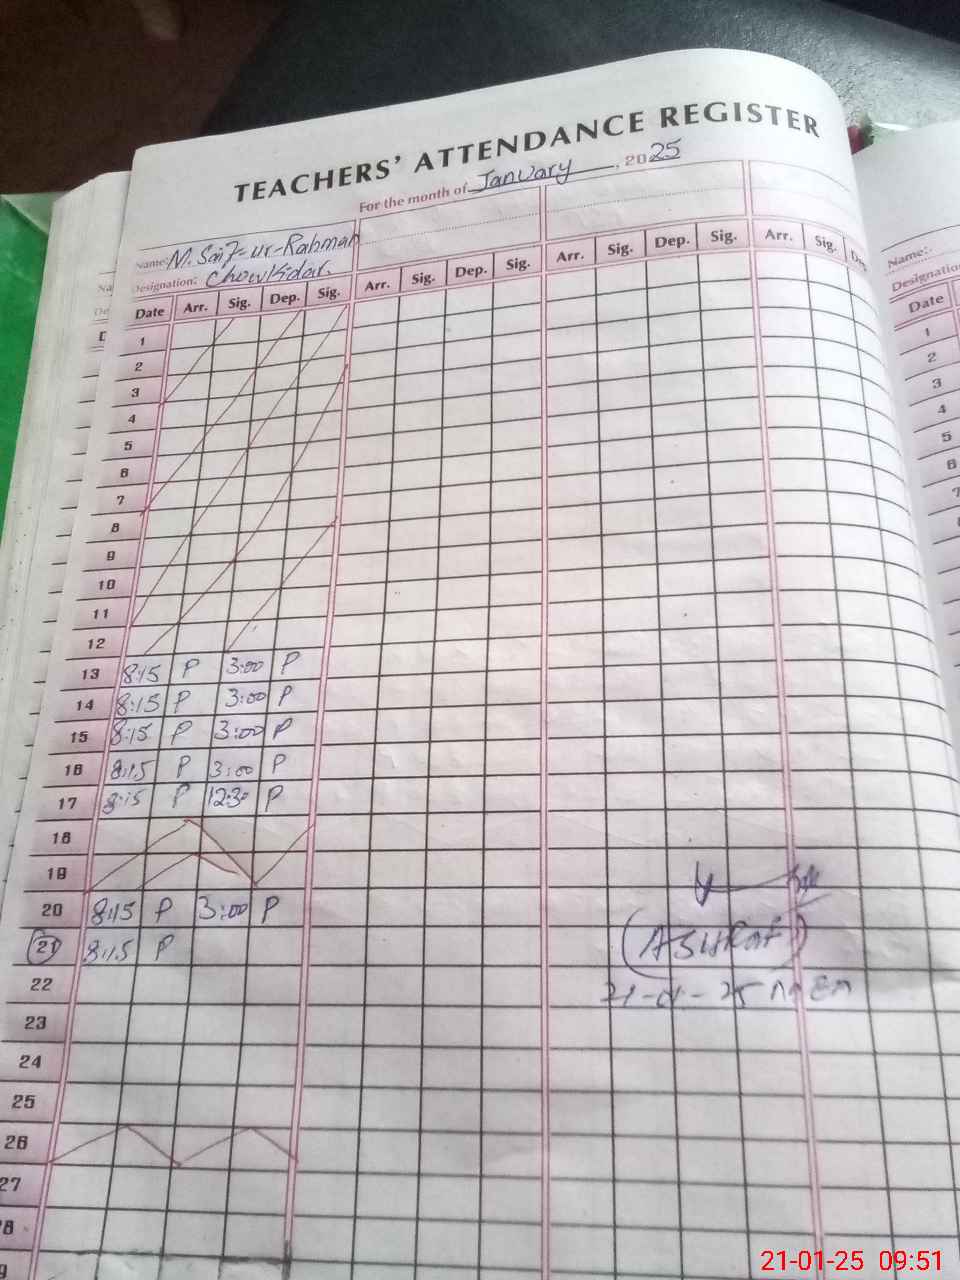 TEACHERS' ATTENDANCE REGISTER
For the month of January, 2025
Name: M. Saif-ur-Rahman
Designation: Chowkidar.
Date Arr. Sig. Dep. Sig. Arr. Sig. Dep. Sig. Arr. Sig. Dep. Sig. Arr. Sig. Dep
1
2
3
4
5
6
7
8
9
10
11
12
13 8:15 P 3:00 P
14 8:15 P 3:00 P
15 8:15 P 3:00 P
16 8:15 P 3:00 P
17 8:15 P 12:30 P
18
19
20 8:15 P 3:00 P
21 8:15 P
22
23
24
25
26
27
28
(ASHRAF)
21-01-25
Name:-
Designation
Date
1
2
3
4
5
6
7
21-01-25 09:51